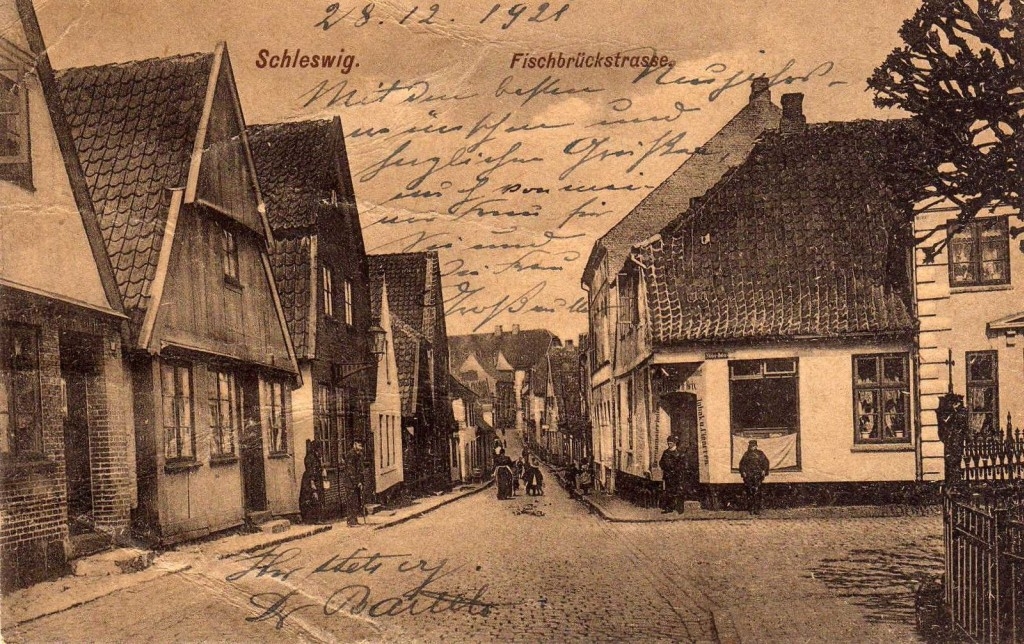 28.12.1921
Schleswig.
Fischbrückstrasse.
Mit den besten Neujahrs-
wünschen und
herzlichen Grüßen
auch von mei-
ner Frau für
Sie und
Frau
Ihr stets erg
Dr